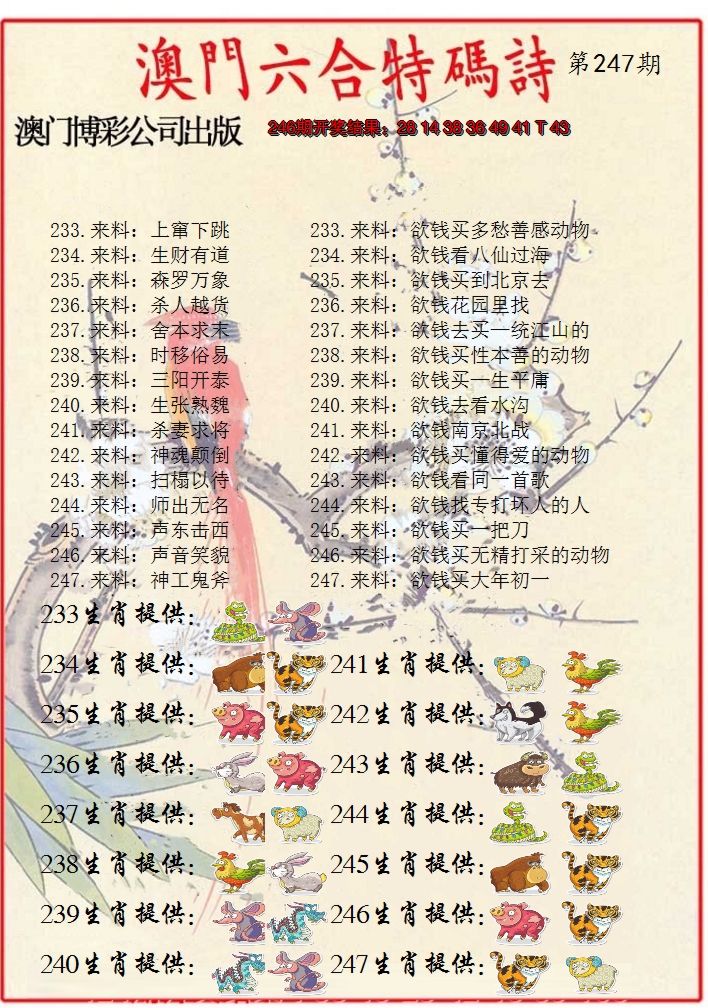 澳門六合特碼詩 第247期
澳门博彩公司出版 246期开奖结果：28 14 38 36 49 41 T 43
233.来料：上窜下跳 233.来料：欲钱买多愁善感动物
234.来料：生财有道 234.来料：欲钱看八仙过海
235.来料：森罗万象 235.来料：欲钱买到北京去
236.来料：杀人越货 236.来料：欲钱花园里找
237.来料：舍本求末 237.来料：欲钱去买一统江山的
238.来料：时移俗易 238.来料：欲钱买性本善的动物
239.来料：三阳开泰 239.来料：欲钱买一生平庸
240.来料：生张熟魏 240.来料：欲钱去看水沟
241.来料：杀妻求将 241.来料：欲钱南京北战
242.来料：神魂颠倒 242.来料：欲钱买懂得爱的动物
243.来料：扫榻以待 243.来料：欲钱看同一首歌
244.来料：师出无名 244.来料：欲钱找专打坏人的人
245.来料：声东击西 245.来料：欲钱买一把刀
246.来料：声音笑貌 246.来料：欲钱买无精打采的动物
247.来料：神工鬼斧 247.来料：欲钱买大年初一
233生肖提供：
234生肖提供： 241生肖提供：
235生肖提供： 242生肖提供：
236生肖提供： 243生肖提供：
237生肖提供： 244生肖提供：
238生肖提供： 245生肖提供：
239生肖提供： 246生肖提供：
240生肖提供： 247生肖提供：